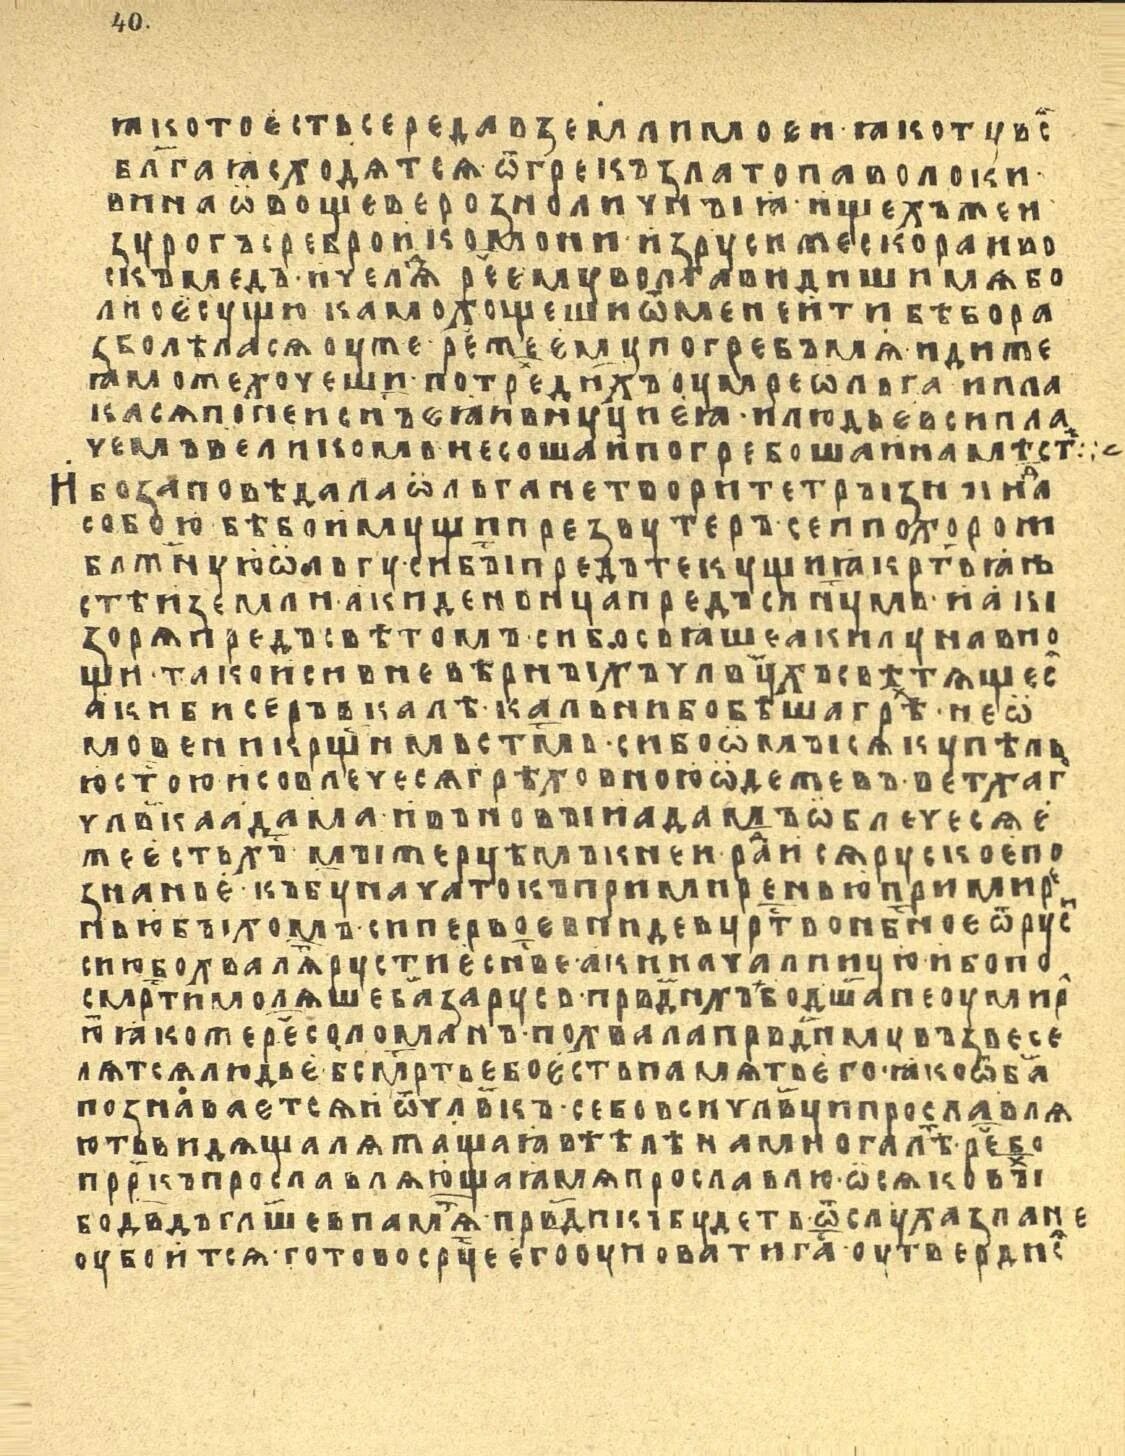 40.
ꙗкотоестьсередавземлимоеи·ꙗкотувьс҃
бл҃гаꙗсходѧтсѧ·ѿгрекъзлатопаволоки·
винаѡвощеверозноличныꙗ·ищехъжеи
зурогъсребройкомони·изрусижескораиво
скъмедъ·ичелѧ҇д рч҃еемуволѣавидишимѧбо
лносѹщюкамохощешиѿменеитибѣбора
зболѣласѧоуже·рч҃ежеемупогребъмѧ·идиже
ꙗможехочеши·потре҃днхъоумреѡльга·ипла
касѧпонеисн҃ъеꙗивнуциеꙗ·илюдьевсипла
чемъвеликомьнесошаипогребошаинамѣст҃·:
Ибозаповѣдалаѡльганетворитетрызнына
собою·бѣбоимущипрезвутеръ·сеипохорон
блж҃нуюѡльгу·сибы҃предътекущиꙗкрт҃ьꙗнь
стѣиземли·акиденьницапредъслн҃цмь·иаки
зорѧпредъсвѣтомъ·сибосьꙗшеакилунавно
щи·такоисиневѣрныхъчлв҃цхъсвѣтѧщес҃
акибисеръвкалѣ·кальнибобѣшагрѣ҃х·неѡ
мовеникрщ҃нмьст҃мь·сибоѡмысѧкупѣль
юст҃оюисовлечесѧгрѣховноюѡдежевъ·ветхаг҃
члв҃каадама·ивъновыиадамъѡблечесѧе
жеестьхъ҃·мыжеруѣмъкнеи·ра҃исѧрускоепо
знаньекъбу҃начатокъпримиренью҃примире
ньюбыхомъ·сипервоевнидевцрт҃вонбн҃оеѿрус҃
сиюбохвалѧ҃рустиесн҃ве·акиначалницю·ибопо
смрт҃имолѧшеба҃зарусь·првдн҃хъбодш҃анеоумир҃
ю҃ꙗкожере҃соломанъ·похвалаправдн҃мувъзвесе
лѧтсѧлюдье·бсмр҃тьебоестьпамѧтьего·ꙗкоѿба҃
познаваетсѧиѿчлв҃къ·себовсичлв҃ципрославлѧ
ютьвидѧщалѧжащаꙗвѣтѣлѣнамногалѣ҃·рч҃ебо
прр҃къпрославлѧющаꙗмѧпрославлю·ѡсѧковы҃
бодв҃дъгл҃шевпамѧ҃·првдн҃икъбудетъ·ѿслухазлане
оубоитсѧ·готовосрц҃еегооуповатинага҃·оутвердис҃